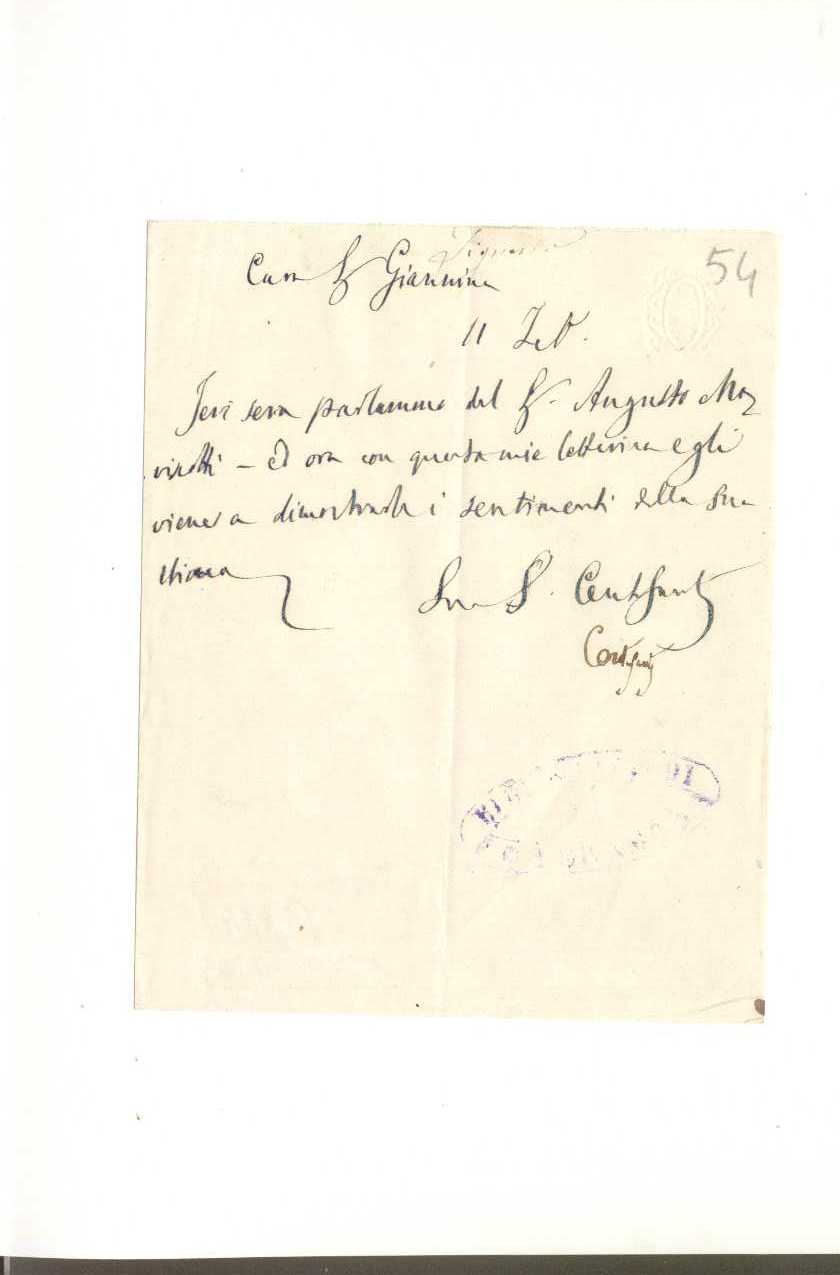 Signora
54
Cara Sig Giannina
11 Feb.
Jeri sera parlammo del Sig. Augusto
– ed ora con questa mia letterina egli
viene a dimostrarle i sentimenti della sua
stima
Suo S. Centofanti
DI